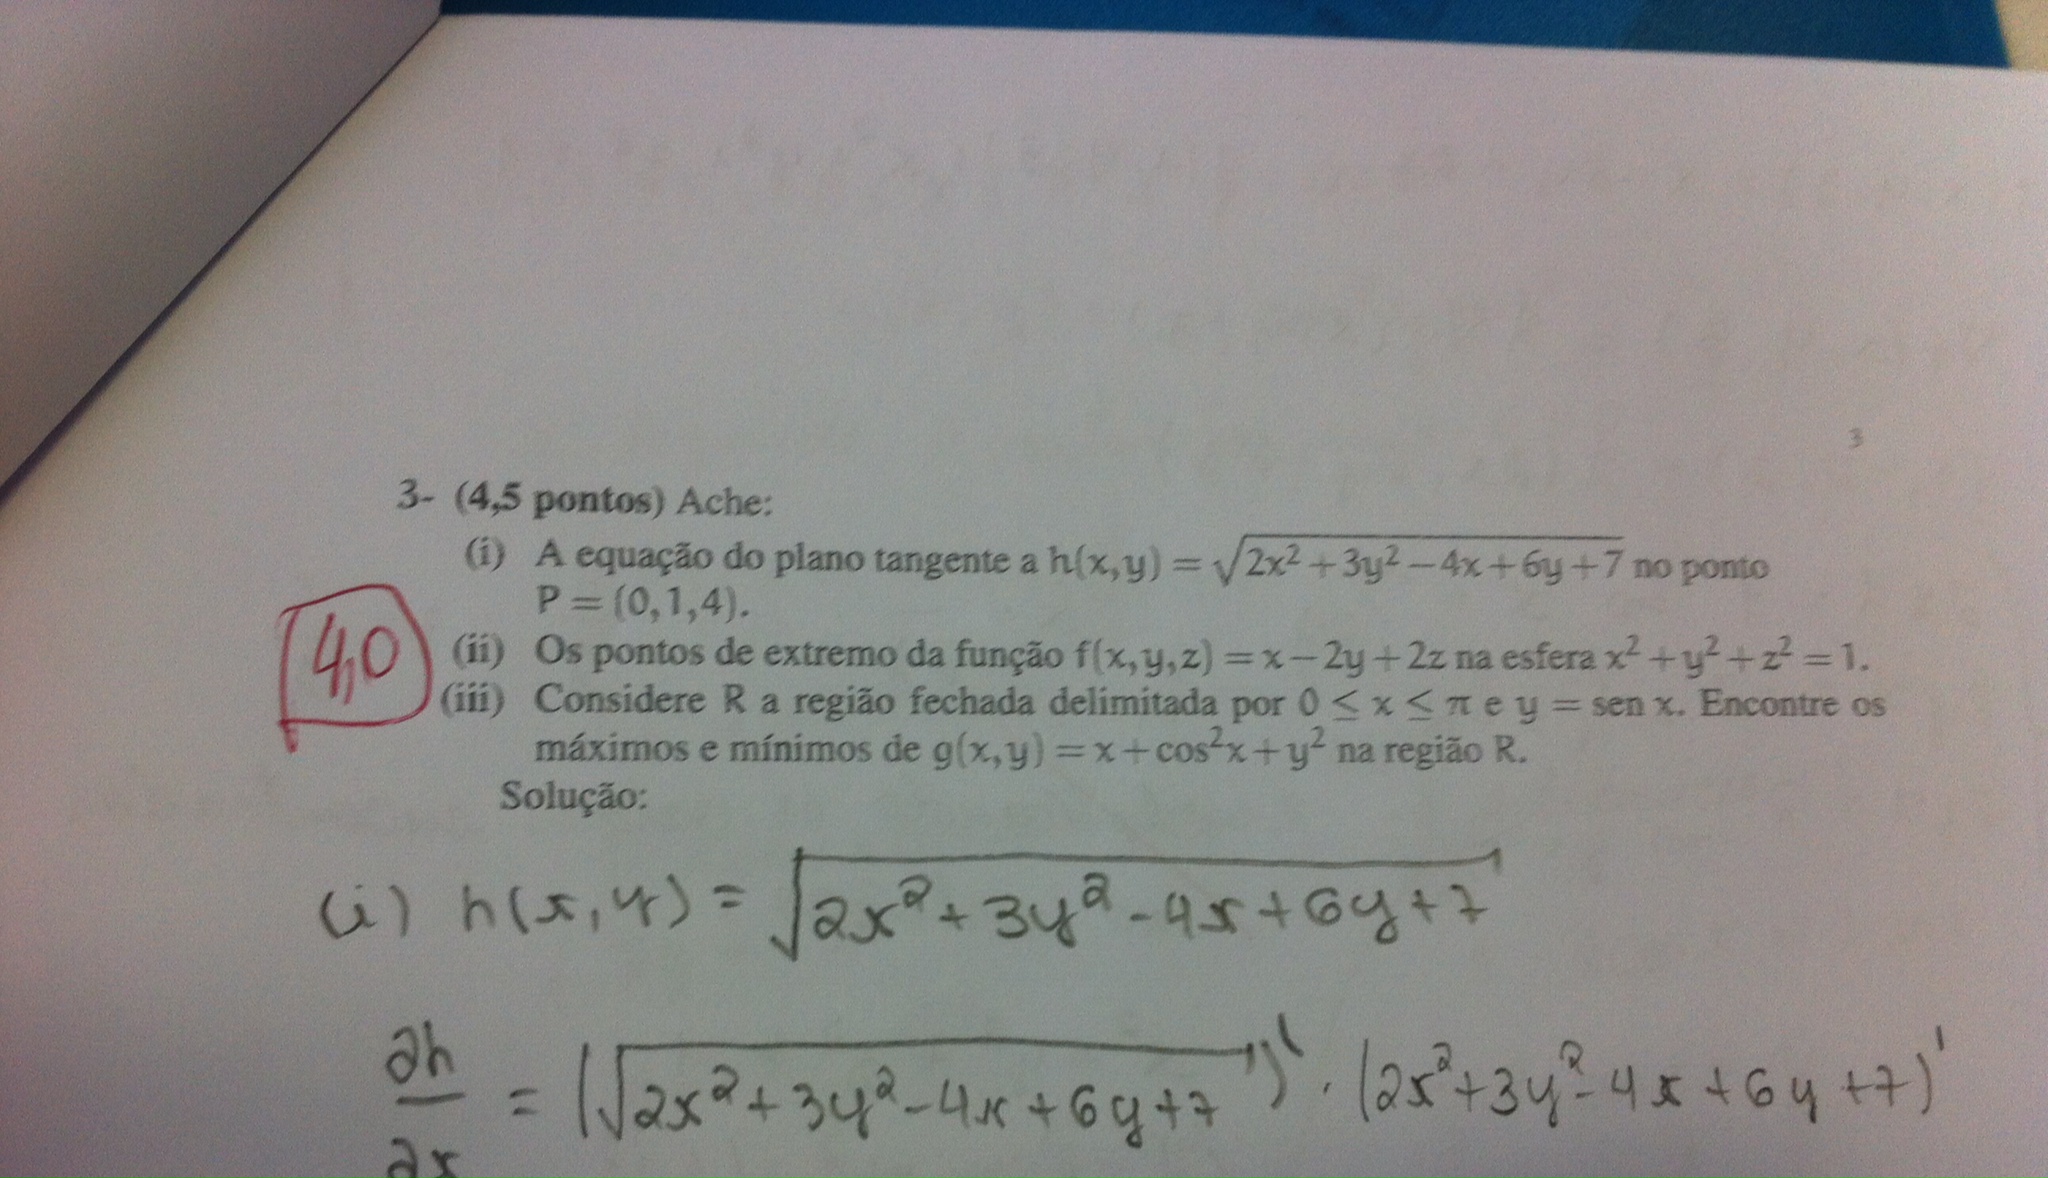 3
3- (4,5 pontos) Ache:
(i) A equação do plano tangente a h(x,y) = √2x² + 3y² − 4x + 6y + 7 no ponto
P = (0,1,4).
4,0
(ii) Os pontos de extremo da função f(x,y,z) = x − 2y + 2z na esfera x² + y² + z² = 1.
(iii) Considere R a região fechada delimitada por 0 ≤ x ≤ π e y = sen x. Encontre os
máximos e mínimos de g(x,y) = x + cos²x + y² na região R.
Solução:
(i) h(x,y) = √2x² + 3y² - 4x + 6y + 7
∂h/∂x = (√2x² + 3y² - 4x + 6y + 7)' . (2x² + 3y² - 4x + 6y + 7)'